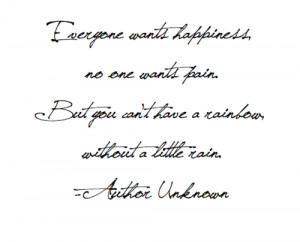 Everyone wants happiness,
no one wants pain.
But you can't have a rainbow,
without a little rain.
-Author Unknown